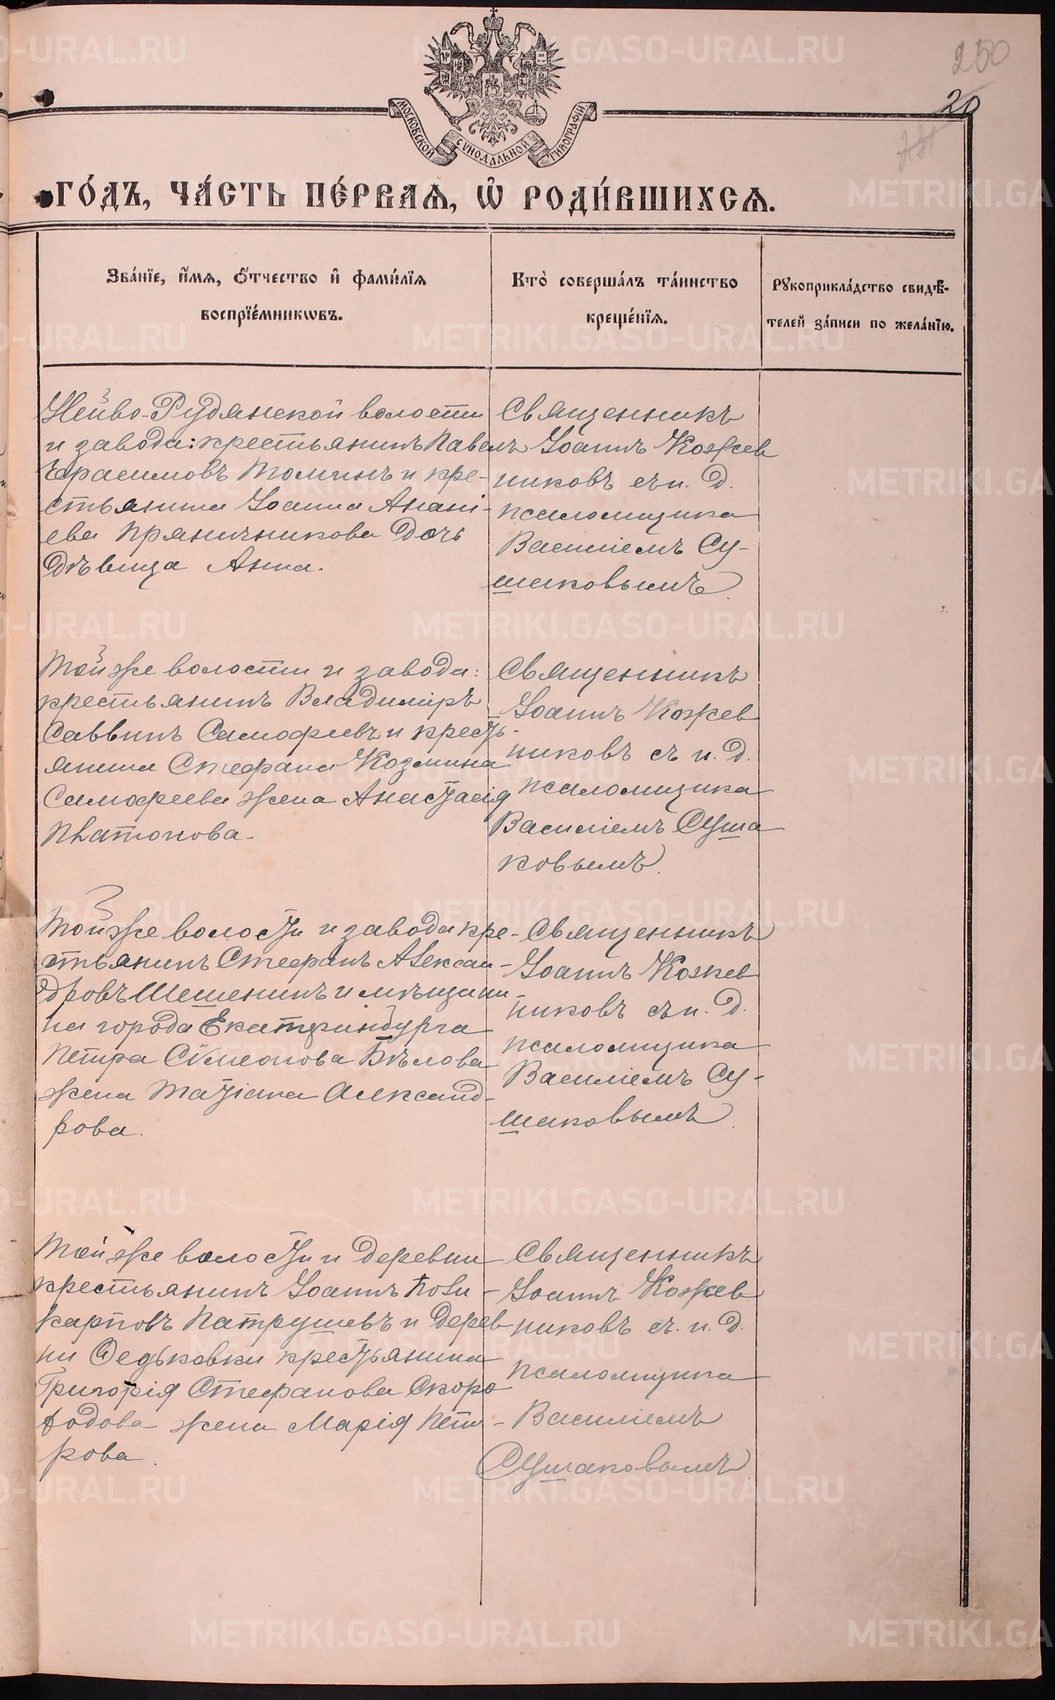 250
20
МОСКОВСКОЙ СѴНОДАЛЬНОЙ ТИПОГРАФІИ
ГО́ДЪ, ЧА́СТЬ ПЕ́РВАѦ, Ѡ҆ РОДИ́ВШИХСѦ.
Зва́нїе, и҆́мѧ, ѻ҆́тчество и҆ фами́лїѧ
воспрїе́мникѡвъ.
Кто̀ соверша́лъ та́инство
креще́нїѧ.
Рꙋкоприкла́дство свидѣ́-
телей за́писи по жела́нїю.
Нейво-Рудянской волости
и завода: крестьянинъ Павелъ
Герасимовъ Томинъ и кре-
стьянина Іоанна Анані-
ева Пряничникова дочь
дѣвица Анна.
Священникъ
Іоаннъ Кожев
никовъ съ и. д.
псаломщика
Василіемъ Су-
шаковымъ.
Той же волости и завода:
крестьянинъ Владиміръ
Саввинъ Самофеевъ и кресть-
янина Стефана Козмина
Самофеева жена Анастасія
Платонова.
Священникъ
Іоаннъ Кожев
никовъ съ и. д.
псаломщика
Василіемъ Суша
ковымъ.
Той же волости и завода кре-
стьянинъ Стефанъ Алексан-
дровъ Шешенинъ и мѣщани-
на города Екатеринбурга
Петра Сѵмеонова Бѣлова
жена Татіана Александ-
рова.
Священникъ
Іоаннъ Кожев
никовъ съ и. д.
псаломщика
Василіемъ Су-
шаковымъ.
Той же волости и деревни
крестьянинъ Іоаннъ Поли-
карповъ Патрушевъ и дерев
ни Федьковки крестьянина
Григорія Стефанова Скоро
додова жена Марія Пет-
рова.
Священникъ
Іоаннъ Кожев
никовъ съ. и. д.
псаломщика
Василіемъ
Сушаковымъ.
METRIKI.GASO-URAL.RU